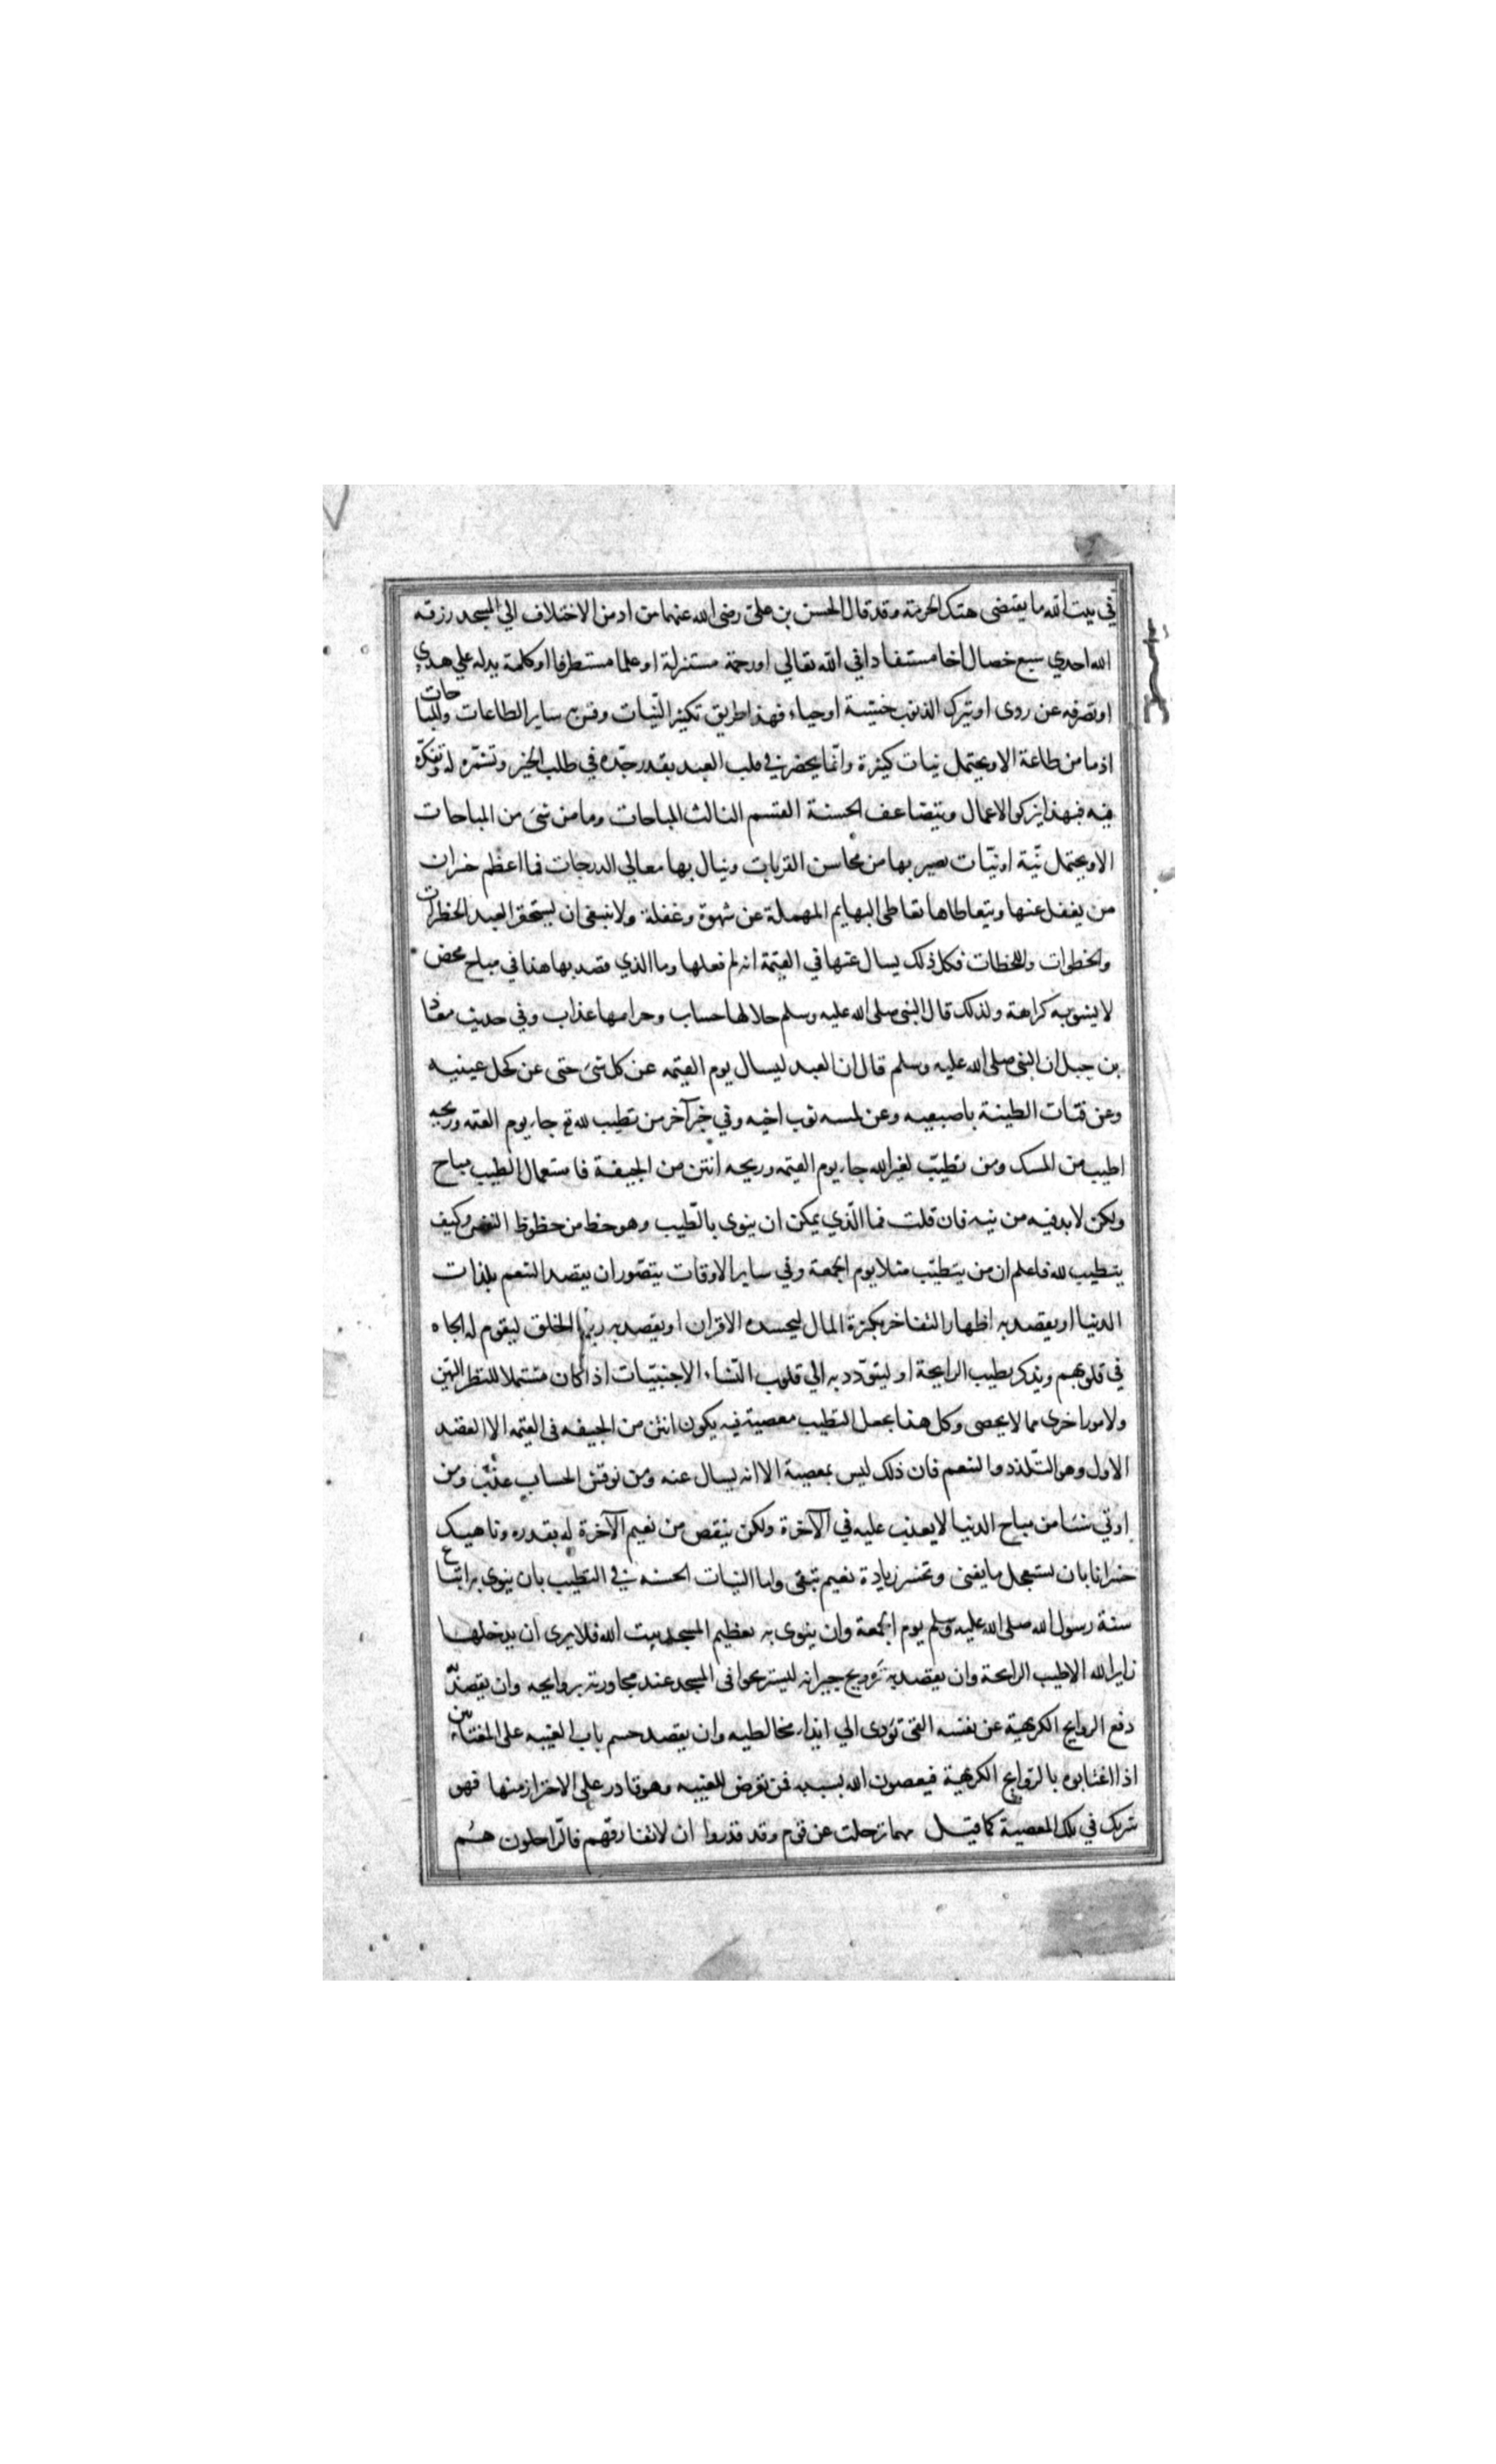 في بيت الله ما يقتضى هتك الحرمة وقد قال الحسن بن على رضى الله عنهما من ادمن الاختلاف الي المسجد رزقه
الله احدي سبع خصال اخا مستفادا في الله تعالي او رحمة مستنزلة او علما مستطرفا او كلمة يدله علي هدي
او تصرفه عن روى او يترك الذنوب خشية او حياء فهذا طريق تكثير النيات وقس ساير الطاعات والمباحات
اذ ما من طاعة الا ويحتمل نيات كثيرة وانما يحضر في قلب العبد بقدر جده في طلب الخير وتشمره له وتفكره
فيه فبهذا يزكو الاعمال ويتضاعف الحسنة القسم الثالث المباحات وما من شئ من المباحات
الا ويحتمل نية او نيات يصير بها من محاسن القربات وينال بها معالي الدرجات فما اعظم خسران
من يغفل عنها ويتعاطاها تعاطى البهايم المهملة عن شهوة وغفلة ولا ينبغى ان يستحقر العبد الخطرات
والخطوات واللحظات فكل ذلك يسال عنها في القيمة انه لم فعلها وما الذي قصد بها هذا في مباح محض
لا يشوبه كراهة ولذلك قال النبى صلى الله عليه وسلم حلالها حساب وحرامها عذاب وفي حديث معاذ
بن جبل ان النبى صلى الله عليه وسلم قال ان العبد ليسال يوم القيمه عن كل شئ حتى عن كحل عينيه
وعن فتات الطينة باصبعيه وعن لمسه ثوب اخيه وفي خبر آخر من تطيب لله تع جاء يوم القيمه وريحه
اطيب من المسك ومن تطيب لغير الله جاء يوم القيمه وريحه انتن من الجيفة فاستعمال الطيب مباح
ولكن لابد فيه من نيه فان قلت فما الذي يمكن ان ينوى بالطيب وهو حظ من حظوظ النفس وكيف
يتطيب لله فاعلم ان من يتطيب مثلا يوم الجمعة وفي ساير الاوقات يتصور ان يقصد التنعم بلذات
الدنيا او يقصد به اظهار التفاخر بكثرة المال ليحسده الاقران او يقصد به رياء الخلق ليقوم له الجاه
في قلوبهم ويذكر بطيب الرايحة او ليتودد به الي قلوب النساء الاجنبيات اذا كان مستحلا للنظر اليهن
ولامور اخرى مما لا يحصى وكل هذا يجعل التطيب معصية فبه يكون انتن من الجيفه فى القيمه الا القصد
الاول وهو التلذذ والتنعم فان ذلك ليس بمعصية الا انه يسال عنه ومن نوقش الحساب عذب ومن
اوتي شيئا من مباح الدنيا لا يعذب عليه في الآخرة ولكن ينقص من نعيم الآخرة له بقدره وناهيك
خسرانا بان يستعجل ما يفنى ويخسر زيادة نعيم تبقى واما النيات الحسنه في التطيب بان ينوى به اتباع
سنة رسول الله صلى الله عليه وسلم يوم الجمعة وان ينوى به تعظيم المسجد بيت الله فلا يرى ان يدخلها
زاير الله الا طيب الرايحة وان يقصد به ترويح جيرانه ليستريحوا فى المسجد عند مجاورته بروايحه وان يقصد
دفع الروايح الكريهية عن نفسه التى تؤدى الي ايذاء مخالطيه وان يقصد حسم باب الغيبه على المغتابين
اذا اغتابوه بالروايح الكريهية فيعصون الله بسببه فمن تعرض للغيبه وهو قادر على الاحتراز منها فهو
شريك في تلك المعصية كما قيل مهما ترحلت عن قوم وقد قدروا ان لا تفارقهم فالراحلون هم